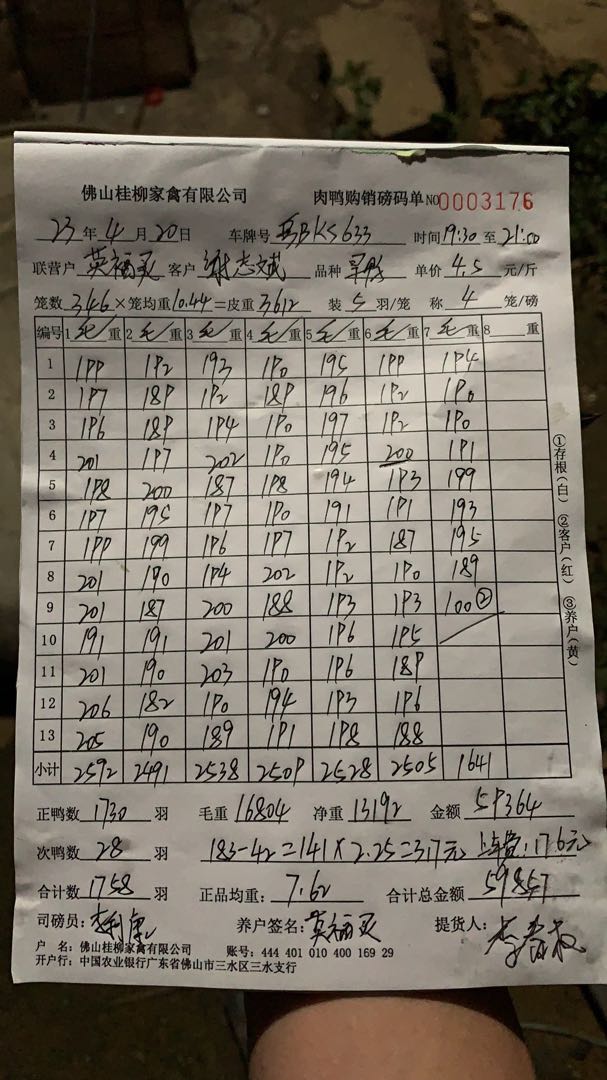 佛山桂柳家禽有限公司 肉鸭购销磅码单 NO 0003176
23 年 4 月 20 日 车牌号 粤BKS633 时间 19:30 至 21:00
联营户 英福 客户 谢志斌 品种 单价 4.5 元/斤
笼数 346 ×笼均重 10.44 =皮重 3612 装 5 羽/笼 称 4 笼/磅
编号 1 毛/重 2 毛/重 3 毛/重 4 毛/重 5 毛/重 6 毛/重 7 毛/重 8 重
1 199 192 193 190 195 199 194
2 197 189 192 189 196 192 190
3 196 189 194 190 197 192 190
4 201 197 202 190 195 200 191
5 198 200 187 198 194 193 199
6 197 195 197 190 191 191 193
7 199 199 196 197 192 187 195
8 201 190 194 202 192 190 189
9 201 187 200 188 193 193 100②
10 191 191 201 200 196 195
11 201 190 203 190 196 189
12 206 182 190 194 193 196
13 205 190 189 191 198 188
小计 2592 2491 2538 2509 2528 2505 1641
①存根(白) ②客户(红) ③养户(黄)
正鸭数 1730 羽 毛重 16804 净重 13192 金额 59364
次鸭数 28 羽 183-42=141×2.25=317元 上车费:176元
合计数 1758 羽 正品均重: 7.62 合计总金额 59857
司磅员: 养户签名: 英福 提货人:
户 名: 佛山桂柳家禽有限公司 账号: 444 401 010 400 169 29
开户行: 中国农业银行广东省佛山市三水区三水支行